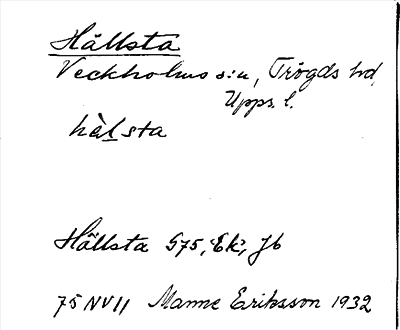 Hällsta
Veckholms s:n, Trögds hd,
Upps. l.
hälsta
Hällsta G75, Ek, Jb
75 NV 11 Manne Eriksson 1932